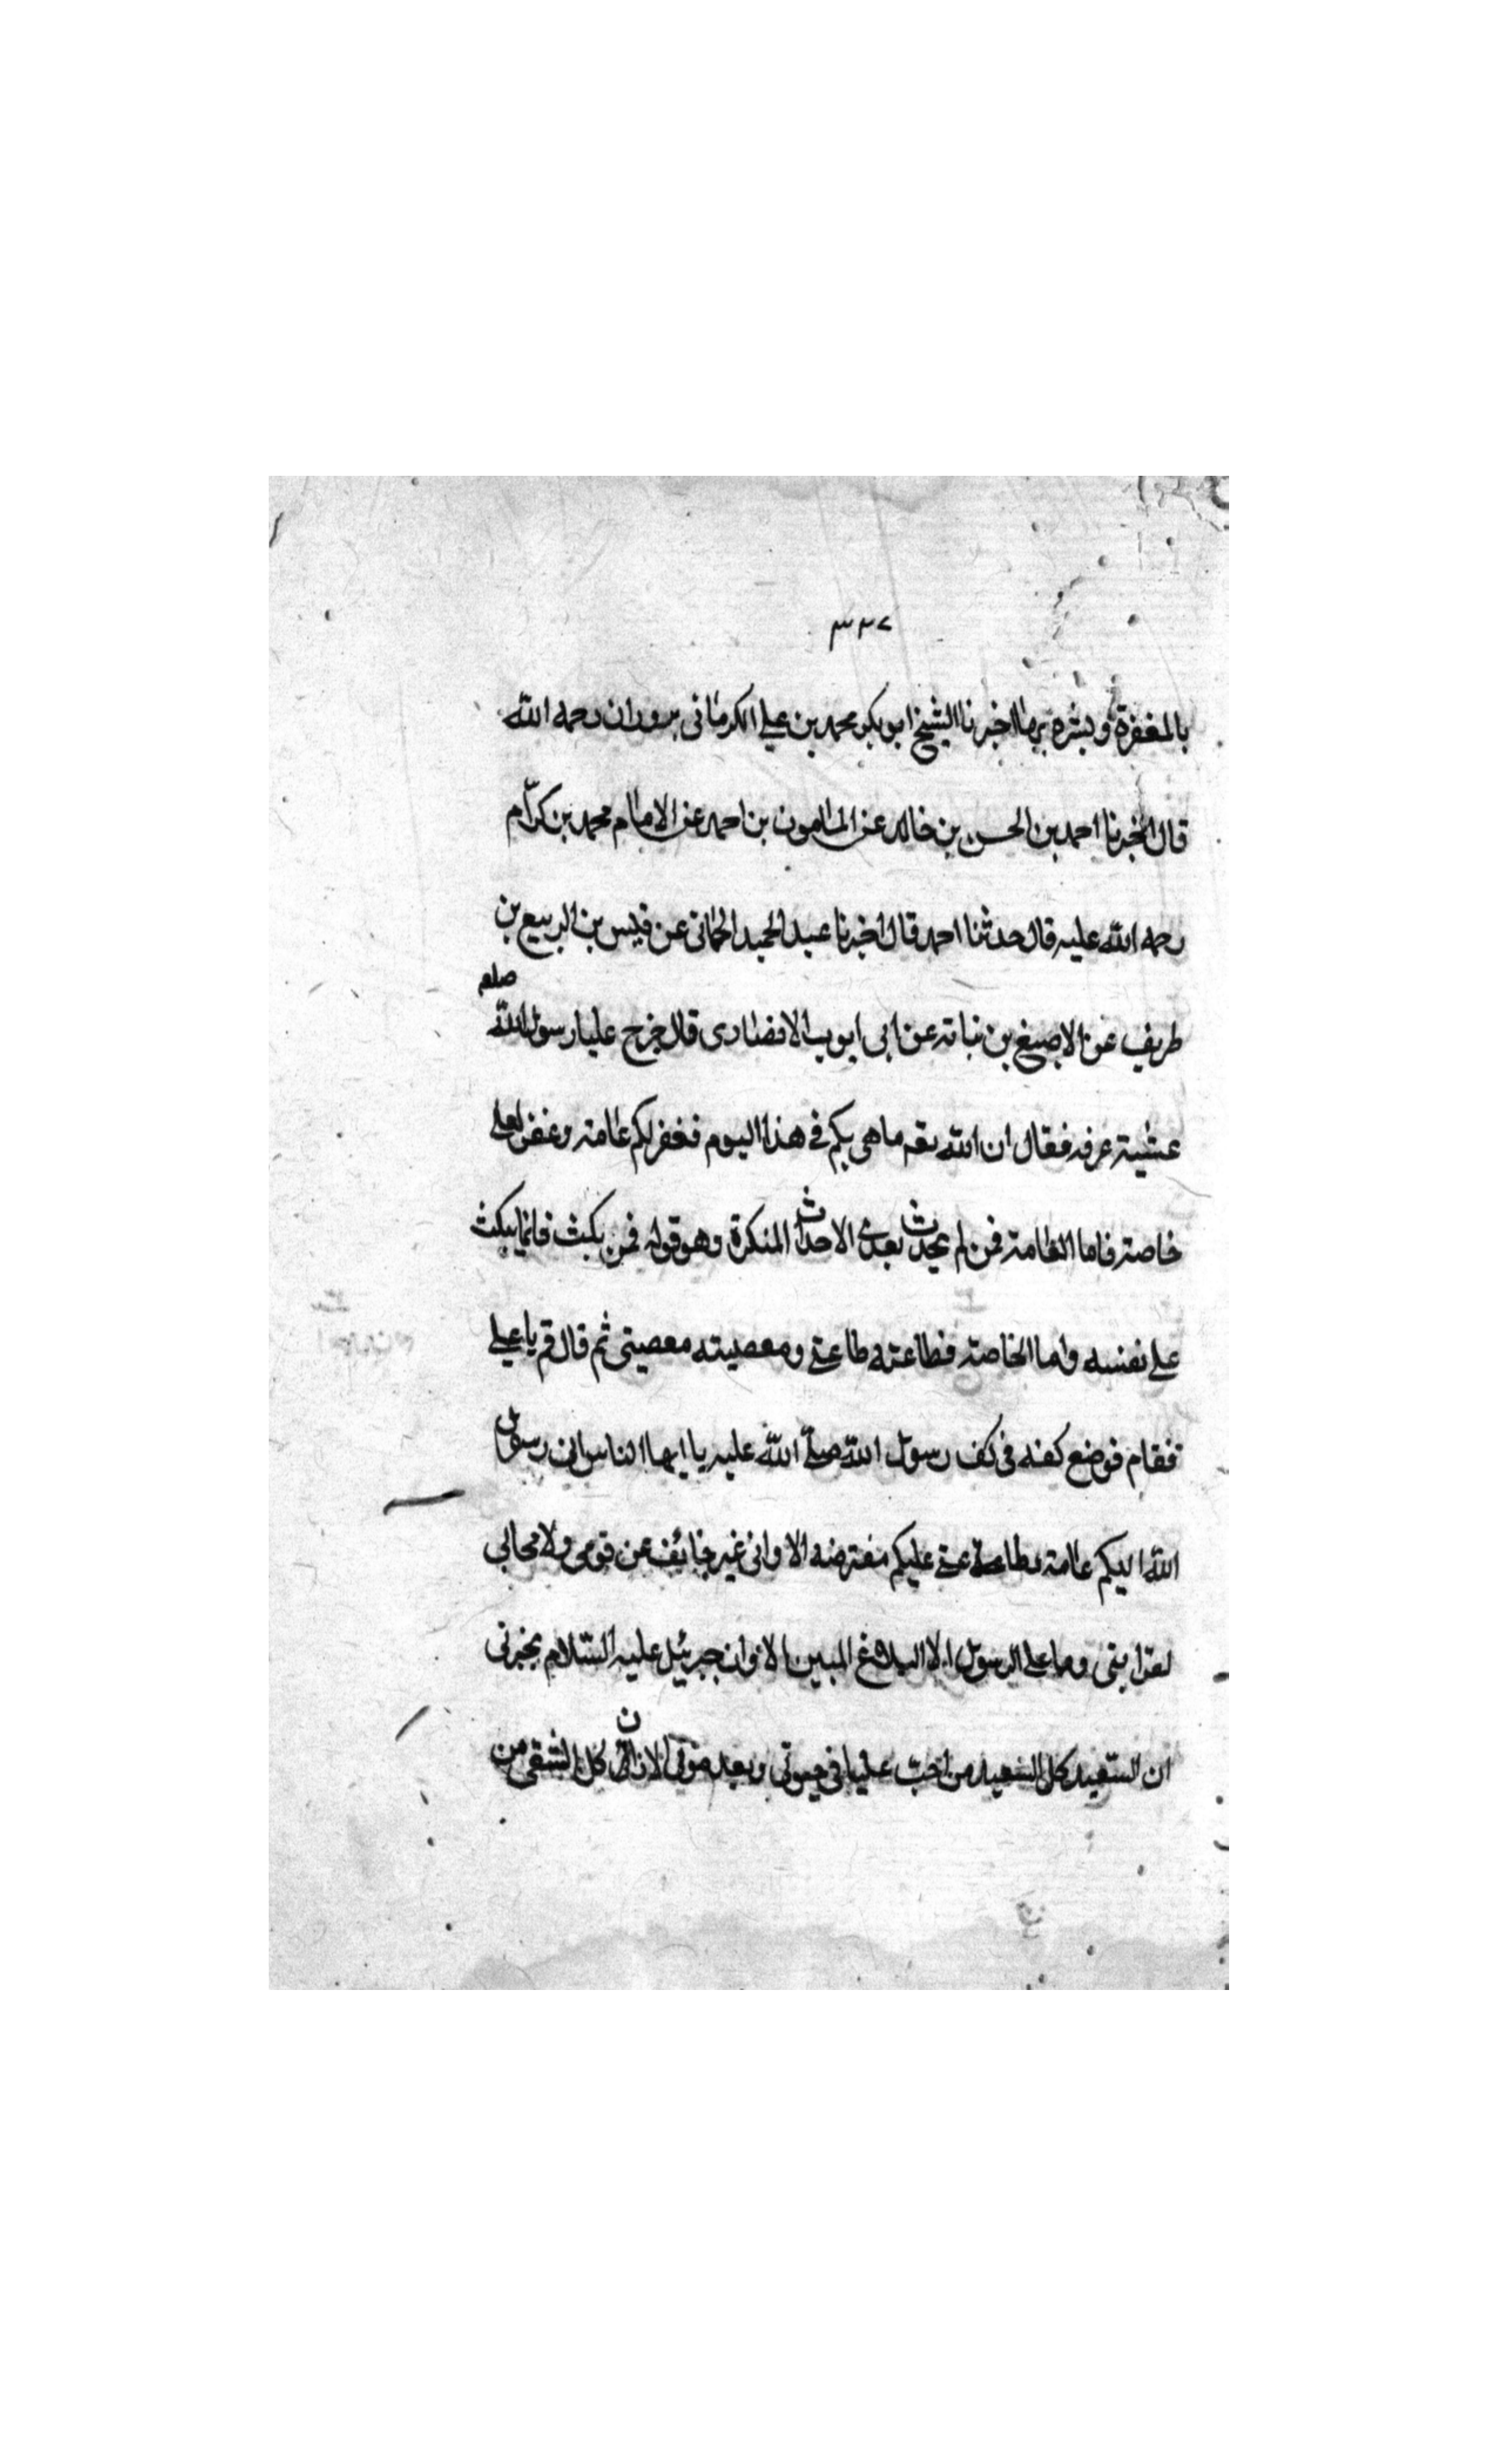 ٣٣٧
بالمغفرة وبشره بها اخبرنا الشيخ ابو بكر محمد بن علي الكرماني رحمه الله
قال اخبرنا احمد بن الحسن بن خالد عن المامون بن احمد عن الامام محمد بن كرّام
رحمه الله عليه قال حدثنا احمد قال اخبرنا عبد الحميد الحماني عن قيس بن الربيع بن
طريف عن الاصبغ بن نباته عن ابي ايوب الانصارى قال خرج علينا رسول الله صلعم
عشية عرفه فقال ان الله باهى بكم في هذا اليوم فغفر لكم عامة وغفر لعلي
خاصة فاما العامة فمن لم يحدث بعدى الاحداث المنكرة وهو قوله فمن نكث فانما ينكث
على نفسه واما الخاصة فطاعته طاعتي ومعصيته معصيتى ثم قال قم يا علي
فقام فوضع كفه في كف رسول الله صلّى الله عليه يا ايها الناس انى رسول
الله اليكم عامة عليكم مفترضه الا وانى غير خائف عن قومى ولا محابى
لقرابتى وما على الرسول الا البلاغ المبين الا وان جبرئيل عليه السّلام يخبرنى
ان السّعيد كل السّعيد من احبّ عليا في حيوتى وبعد موتى الا وان كل الشقى من